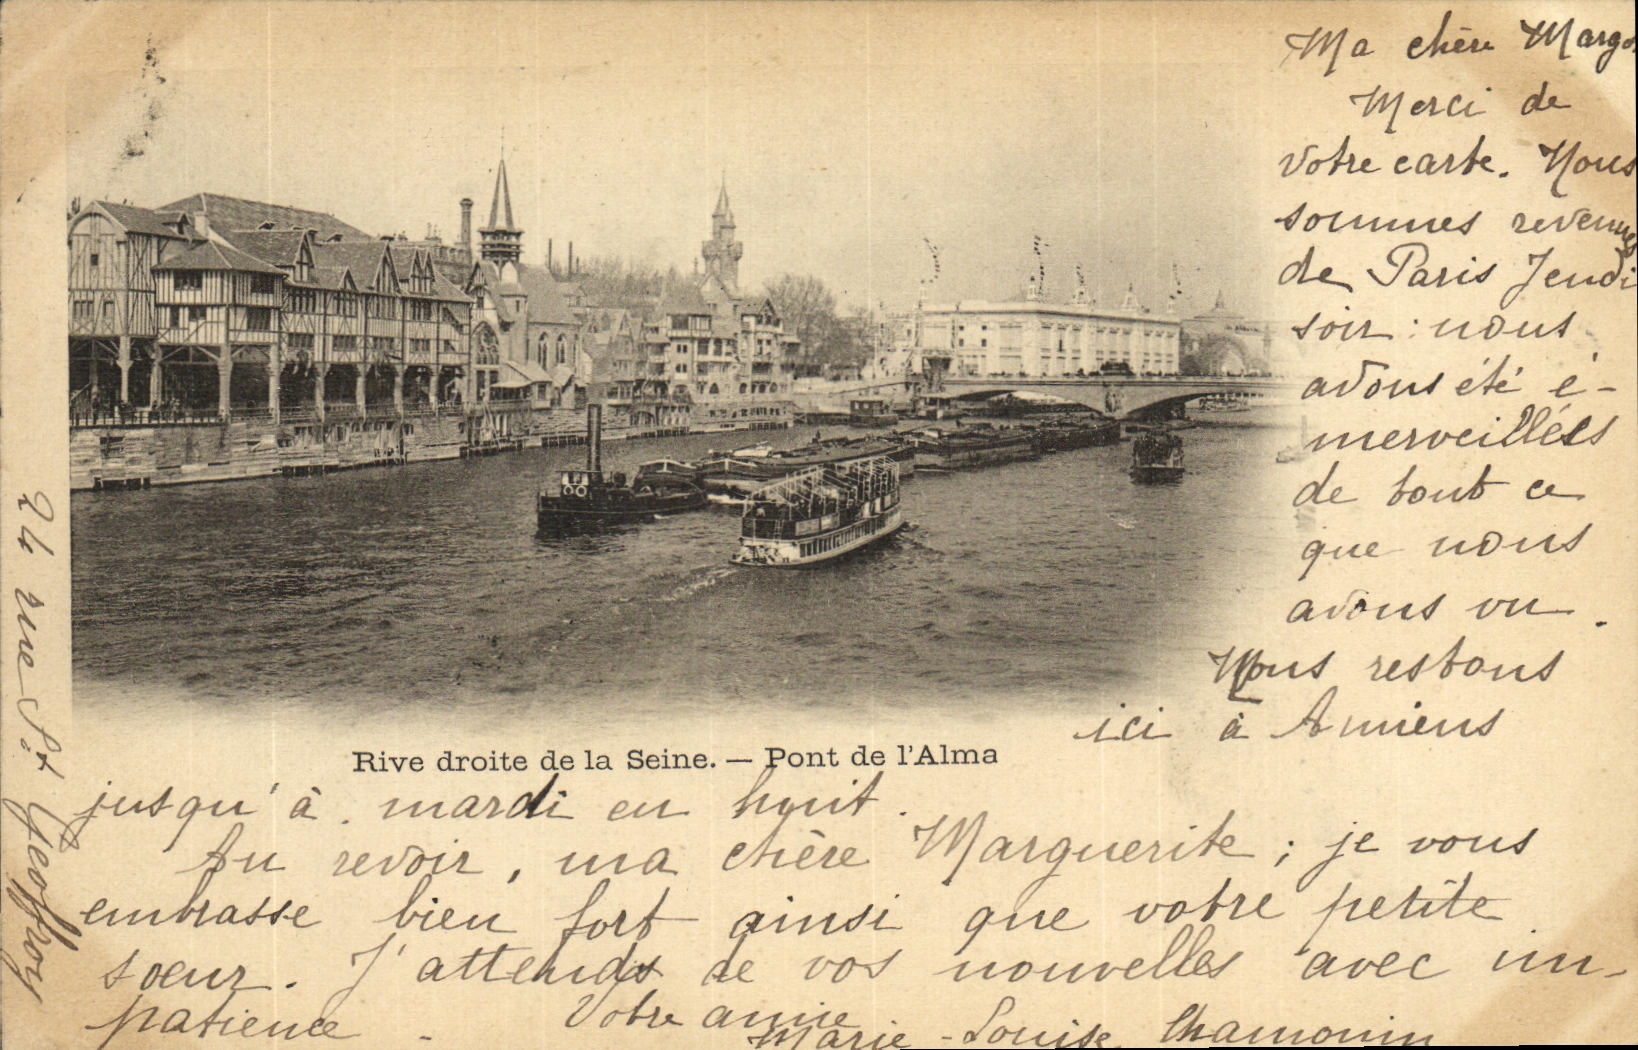 Ma chère Margo
Merci de
votre carte. Nous
sommes revenues
de Paris Jeudi
soir : nous
avons été é-
merveillées
de tout ce
que nous
avons vu.
Nous restons
ici à Amiens
Rive droite de la Seine. — Pont de l'Alma
jusqu'à mardi en huit.
Au revoir, ma chère Marguerite ; je vous
embrasse bien fort ainsi que votre petite
soeur. J'attends de vos nouvelles avec im-
patience.
Votre amie
Marie-Louise
24 rue St Geoffroy